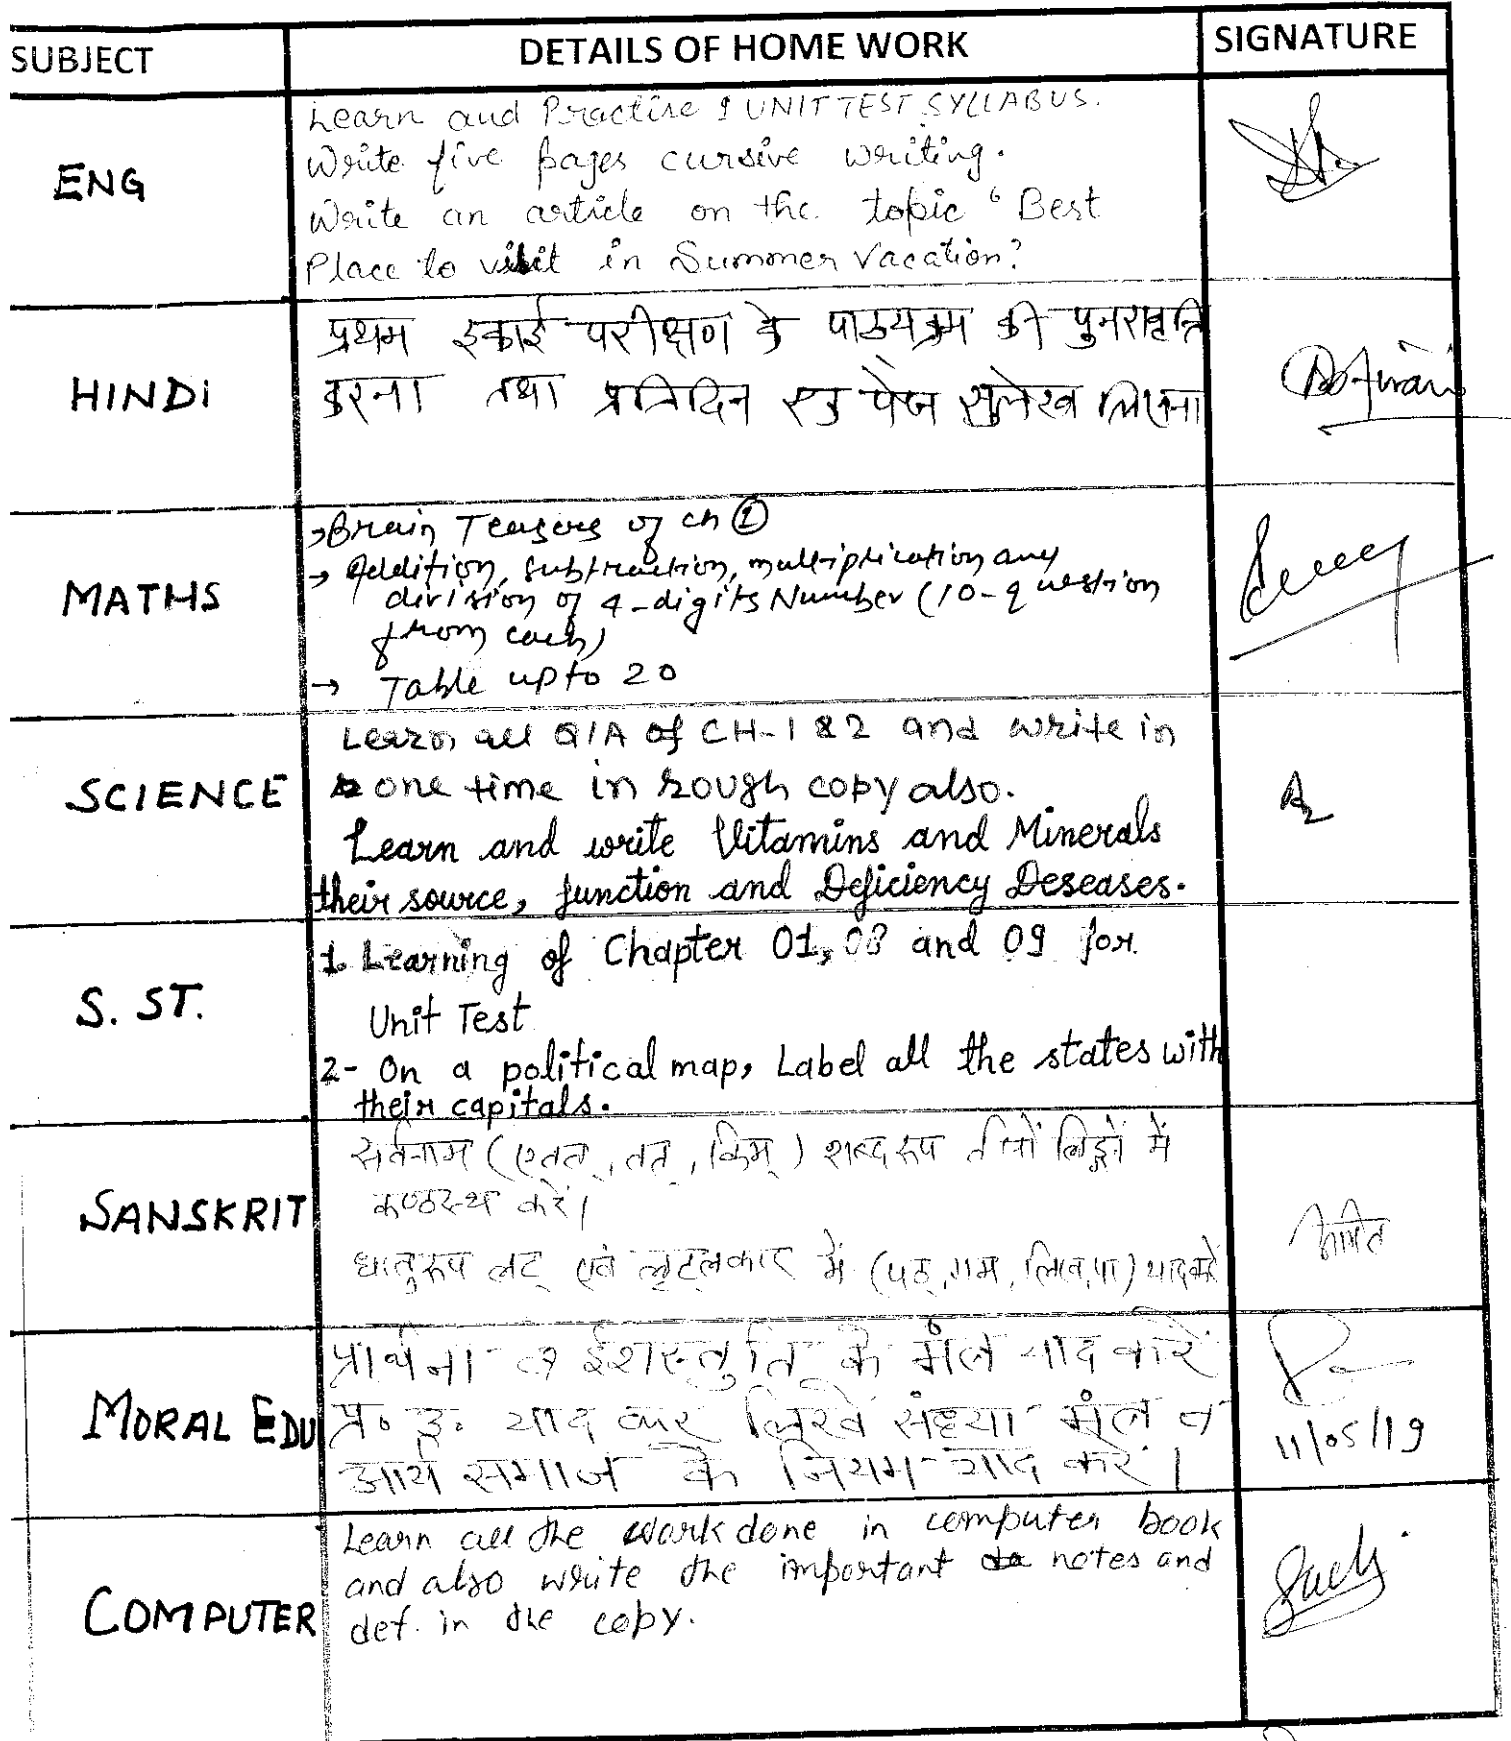 SUBJECT DETAILS OF HOME WORK SIGNATURE
ENG
Learn and Practise I UNIT TEST SYLLABUS.
Write five pages cursive writing.
Write an article on the topic "Best
Place to visit in Summer Vacation."
HINDI
प्रथम इकाई परीक्षण के पाठ्यक्रम की पुनरावृत्ति
करना तथा प्रतिदिन एक पेज सुलेख लिखना
MATHS
→Brain Teasers of ch ①
→ Addition, subtraction, multiplication any
division of 4-digits Number (10-question
from each)
→ Table upto 20
SCIENCE
Learn all Q/A of CH-1 & 2 and write in
one time in rough copy also.
Learn and write Vitamins and Minerals
their source, function and Deficiency Deseases.
S. ST.
1. Learning of Chapter 01, 08 and 09 for
Unit Test
2- On a political map, Label all the states with
their capitals.
SANSKRIT
सर्वनाम (एतत्, तत्, किम्) शब्द रूप तीनों लिङ्गों में
कण्ठस्थ करें।
धातुरूप लट् एवं लृट्लकार में (पठ्, गम्, लिख, पा) याद करें
अमित
MORAL EDU
प्रार्थना व ईशस्तुति के मंत्र याद करें
प्र॰ उ॰ याद कर लिखें संध्या मंत्र व
आर्य समाज के नियम याद करें।
11/05/19
COMPUTER
Learn all the work done in computer book
and also write the important notes and
def. in the copy.